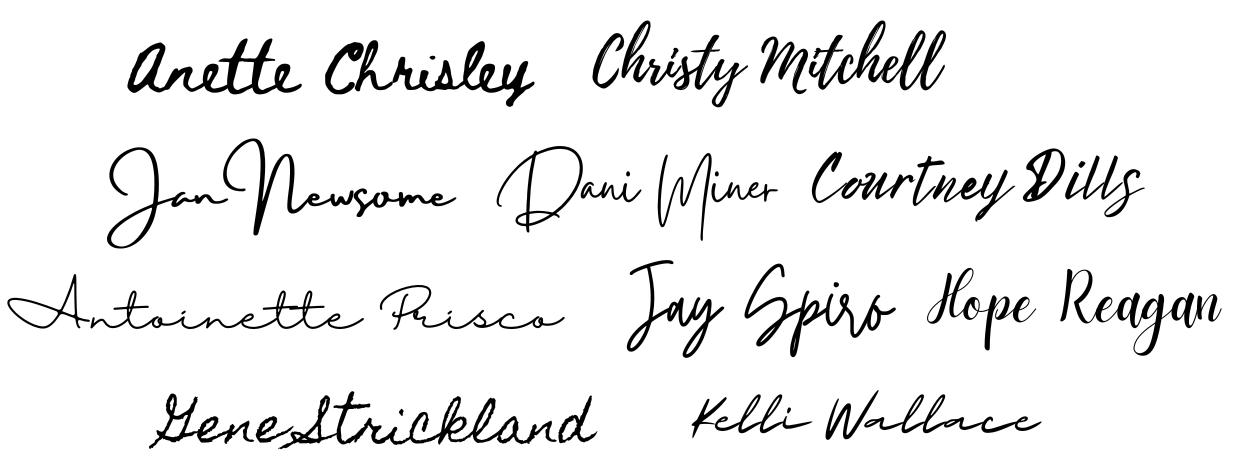 Anette Chrisley Christy Mitchell
Jan Newsome Dani Miner Courtney Dills
Antoinette Prisco Jay Spiro Hope Reagan
Gene Strickland Kelli Wallace